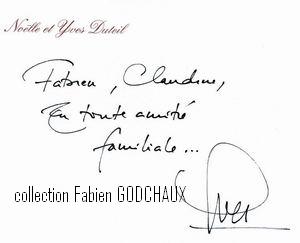 Noëlle et Yves Duteil
Fabien, Claudine,
En toute amitié
familiale...
collection Fabien GODCHAUX
Yves